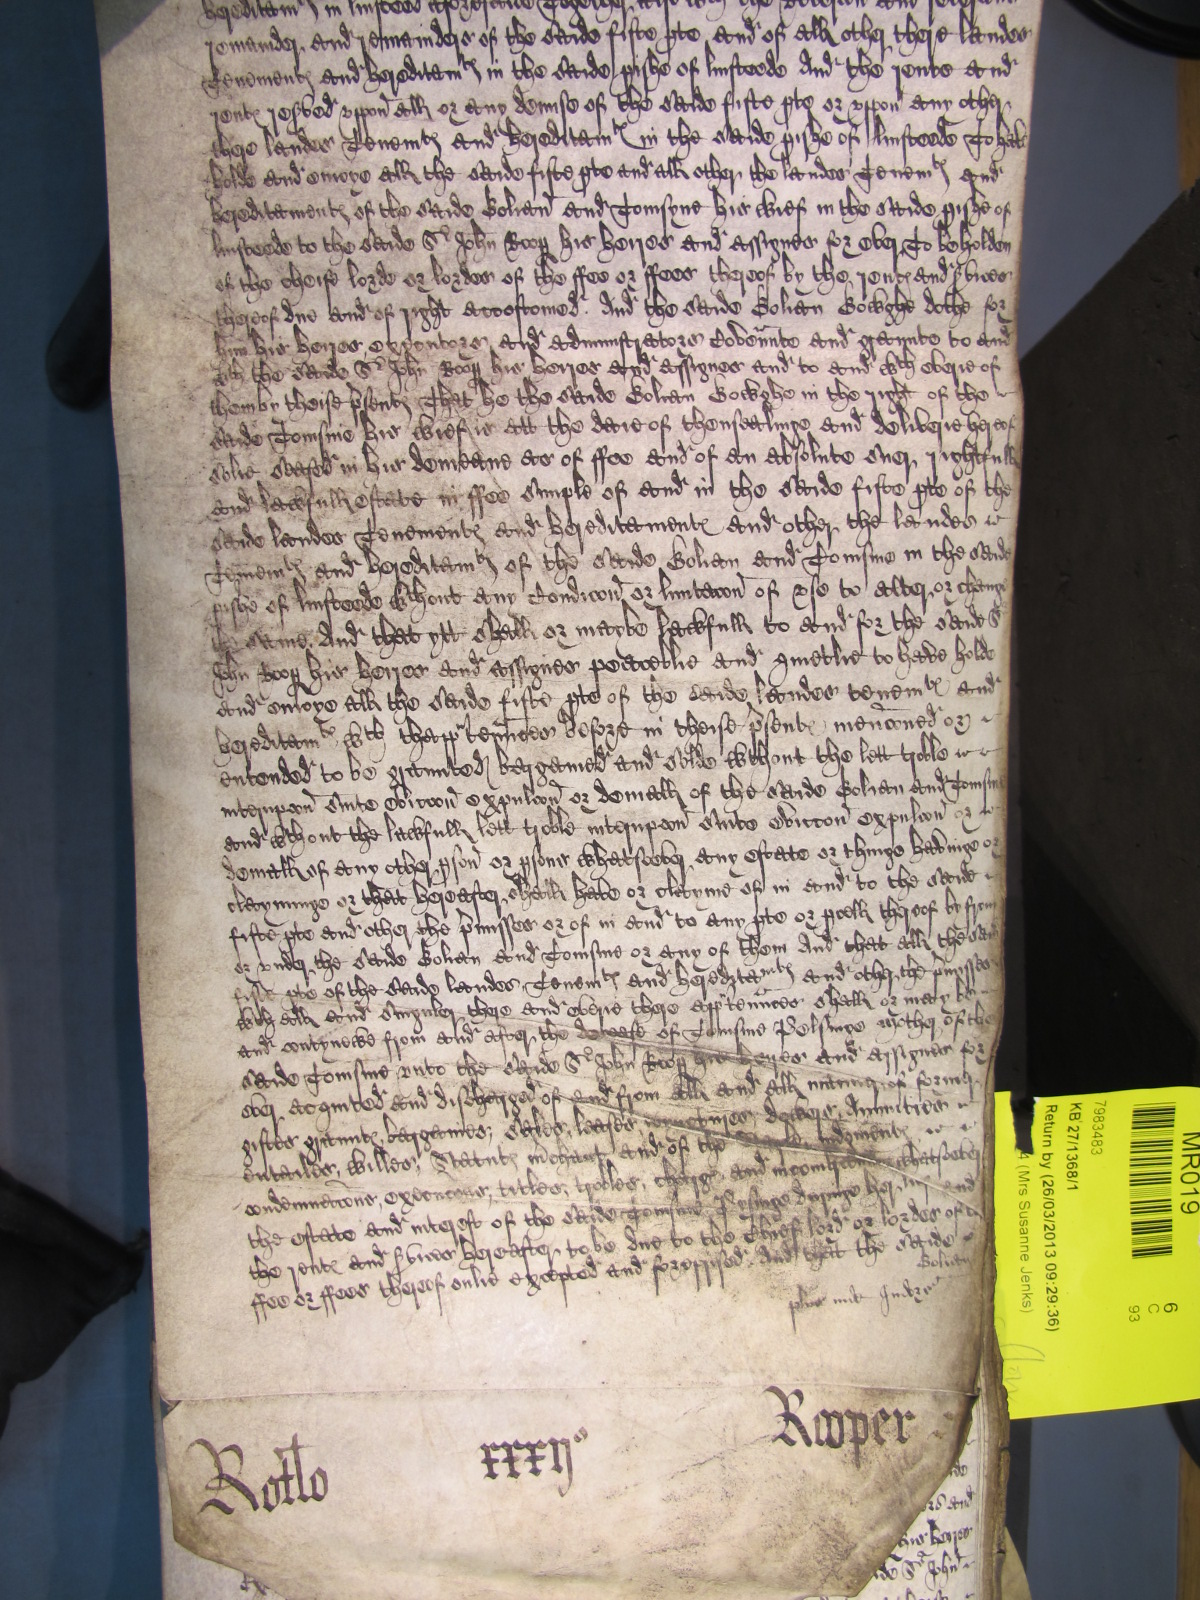 hereditamtℯ in linsteed aforesaide Together
remainder and remainders of the saide fifte pte and of all other there landes
Tenementℯ and hereditamtℯ in the saide pishe of linsteede And the rente and
rentℯ resved uppon all or any demise of the saide fifte pte or uppon any other
there landes Tenemtℯ and hereditamtℯ in the saide pishe of linsteede To have
holde and enioye all the saide fifte pte and all other the landes Tenemtℯ and
hereditamentℯ of the saide Golian and Tomsyne his wief in the saide pishe of
linsteede to the saide Sr John Roop his heires and assignes for ever To be holden
of the cheife lorde or lordes of the ffee or ffees thereof by the rentℯ and svices
thereof due and of right accostomed. And the saide Golian Gowghe dothe for
him his heires, executors, and administrators Covennte and graunte to and
wth the saide Sr John Roop his heires and assignes and to and wth everie of
them by theise psentℯ That he the saide Golian Gowghe in the right of the
saide Tomsine his wief is att the date of thensealinge and deliverie hereof
solie seased in his demeane as of ffee and of an absolute suer, rightfull
and lawfull estate in ffee simple of and in the saide fifte pte of the
saide landes Tenementℯ and hereditamentℯ and other the landes
Tenemtℯ and hereditamtℯ of the saide Golian and Tomsine in the saide
pishe of linsteede wthout any Condicon or limitacon of use to alter or change
the same. And that ytt shall or maybe lawfull to and for the saide Sr
John Roop his heires and assignes peaceblie and quietlie to have holde
and enioye all the saide fifte pte of the saide landes tenemtℯ and
hereditamtℯ wth thapptennces before in theise psentℯ mencioned or
entended to be graunted bargained and solde wthout the lett troble
interupcon suite eviccon expulcon or deniall of the saide Golian and Tomsine
and wthout the lawfull lett troble interupcon suite eviccon expulcon or
deniall of any other pson or psons whatsoever any estate or thinge havinge or
claymynge or that hereafter shall have or clayme of in and to the saide
fifte pte and other the pmisses or of in and to any pte or pcell thereof by from
or under the saide Golian and Tomsine or any of them And that all the saide
fifte pte of the saide landes, Tenemtℯ and hereditamtℯ and other the pmisses
wth all and singuler there and everie there apptennces shall or may be
and contynewe from and after the decease of Tomsine Pelsinge mother of the
saide Tomsine unto the saide Sr John Roop his heires and assignes for
ever acquited and discharged of and from all and all manner of former
giftes grauntℯ bargaines, sales, leases, ioinctures, dowers, Annuities
entailes, willes, Statutℯ m'chant and of the Staple, iudgmentℯ
condemnacons, execucons, titles, trobles, charge, and incombrances whatsoever
the estate and interest of the saide Tomsine Pelsinge duringe her lief and
the rentℯ and svices hereafter to be due to the Chief lord or lordes of the
ffee or ffees thereof onlie excepted and foreprised. And that the saide
Golian
Rotlo xxxijo Rooper
7983483
KB 27/1368/1
Return by (26/03/2013 09:29:36)
(Mrs Susanne Jenks)
MR019
6
C
93